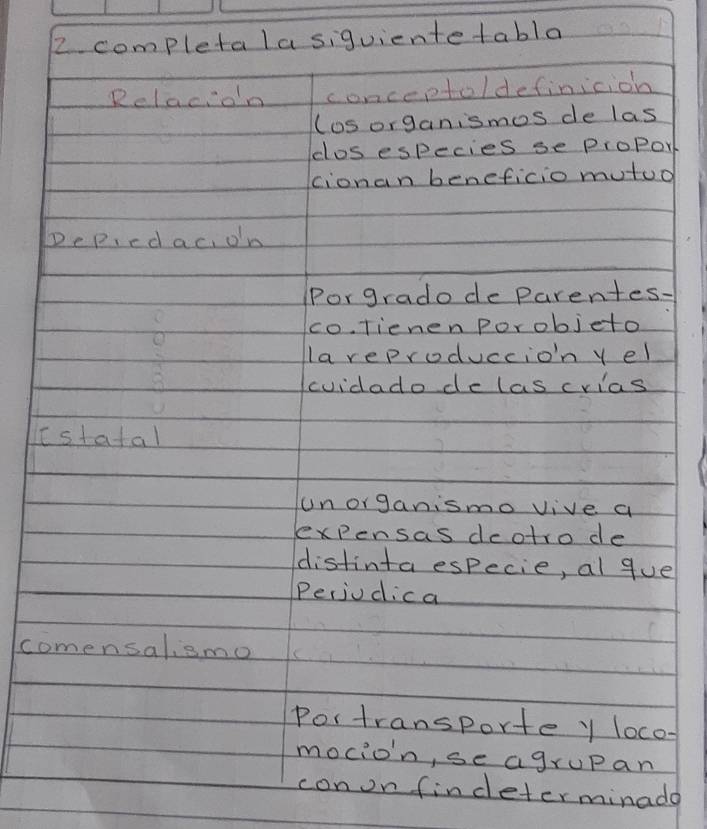 2. completa la siguiente tabla
Relación concepto/definición
los organismos de las
dos especies se propor
cionan beneficio mutuo
Depredación
Por grado de parentes-
co. Tienen por objeto
la reproducción y el
cuidado de las crías
Estatal
un organismo vive a
expensas de otro de
distinta especie, al que
Perjudica
comensalismo
Por transporte y loco-
moción, se agrupan
con un fin determinado